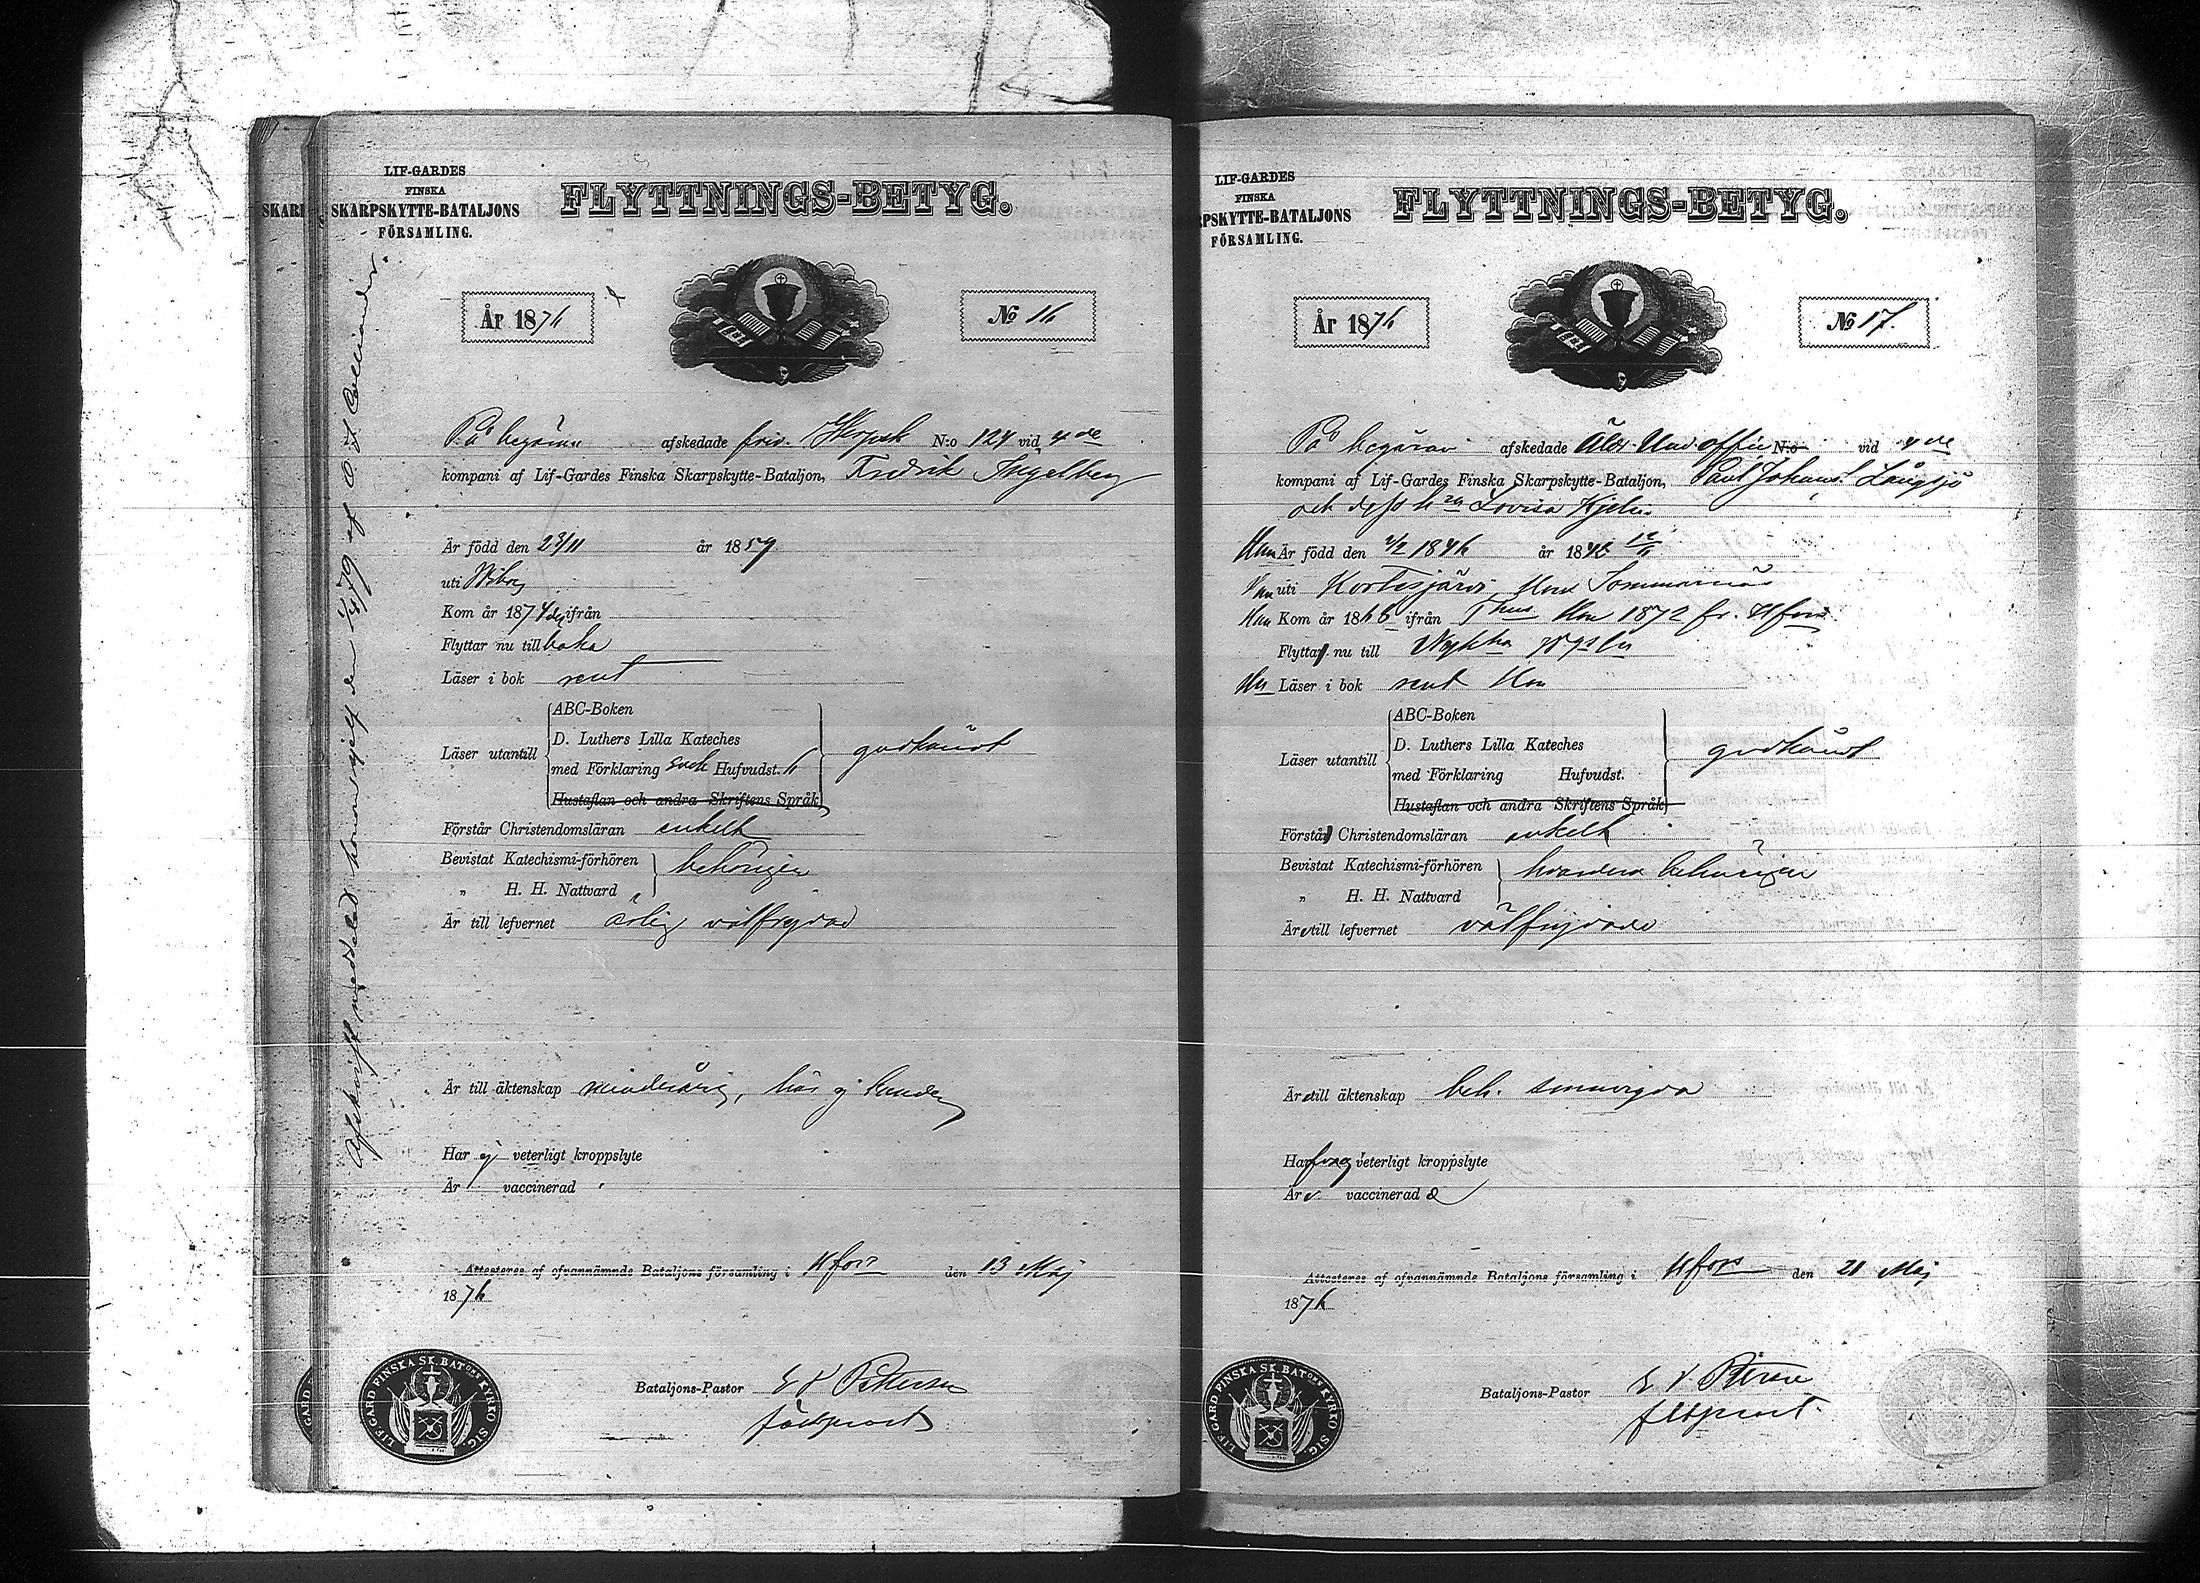 LIF-GARDES
FINSKA
SKARPSKYTTE-BATALJONS
FÖRSAMLING.
FLYTTNINGS-BETYG.
År 1876
No 16
På begäran afskedade friv. Skarpsk N:o 124 vid 4de
kompani af Lif-Gardes Finska Skarpskytte-Bataljon, Fredrik Ingelberg
Är född den 23/11 år 1859
uti Wiborg
Kom år 1874 ifrån
Flyttar nu till baka
Läser i bok rent
ABC-Boken
D. Luthers Lilla Kateches
Läser utantill
med Förklaring och Hufvudst.
godkändt
Hustaflan och andra Skriftens Språk
Förstår Christendomsläran enkelt
Bevistat Katechismi-förhören
behörigen
„ H. H. Nattvard
Är till lefvernet ärlig välfrejdad
Är till äktenskap minderårig, här ej bunden
Har ej veterligt kroppslyte
Är vaccinerad
Attesteras af ofvannämnde Bataljons församling i Hfors den 13 Maj
1876
Bataljons-Pastor
LIF-GARD FINSKA SK. BATONS KYRKO SIG.
Afskrift meddelad
SKARP
LIF-GARDES
FINSKA
RPSKYTTE-BATALJONS
FÖRSAMLING.
FLYTTNINGS-BETYG.
År 1876
No 17.
På begäran afskedade Äldr. Und.offic. N:o vid 4de
kompani af Lif-Gardes Finska Skarpskytte-Bataljon, Paul Johans. Långsjö
och dess h:u Lovisa
Han Är född den 2/2 1846 år 1842 12/11
Han uti Kortesjärvi, Hon Sommarnäs
Han Kom år 1866 ifrån Hon 1872 fr. Hfors
Flytta nu till Nykarleby
Läser i bok rent Hon
ABC-Boken
D. Luthers Lilla Kateches
Läser utantill
med Förklaring Hufvudst.
godkändt
Hustaflan och andra Skriftens Språk
Förstå Christendomsläran enkelt
Bevistat Katechismi-förhören
hvardera behörigen
„ H. H. Nattvard
Äro till lefvernet välfrejdade
Äro till äktenskap
Har veterligt kroppslyte
Äro vaccinerade
Attesteras af ofvannämnde Bataljons församling i Hfors den 21 Maj
1876
Bataljons-Pastor
LIF-GARD FINSKA SK. BATONS KYRKO SIG.